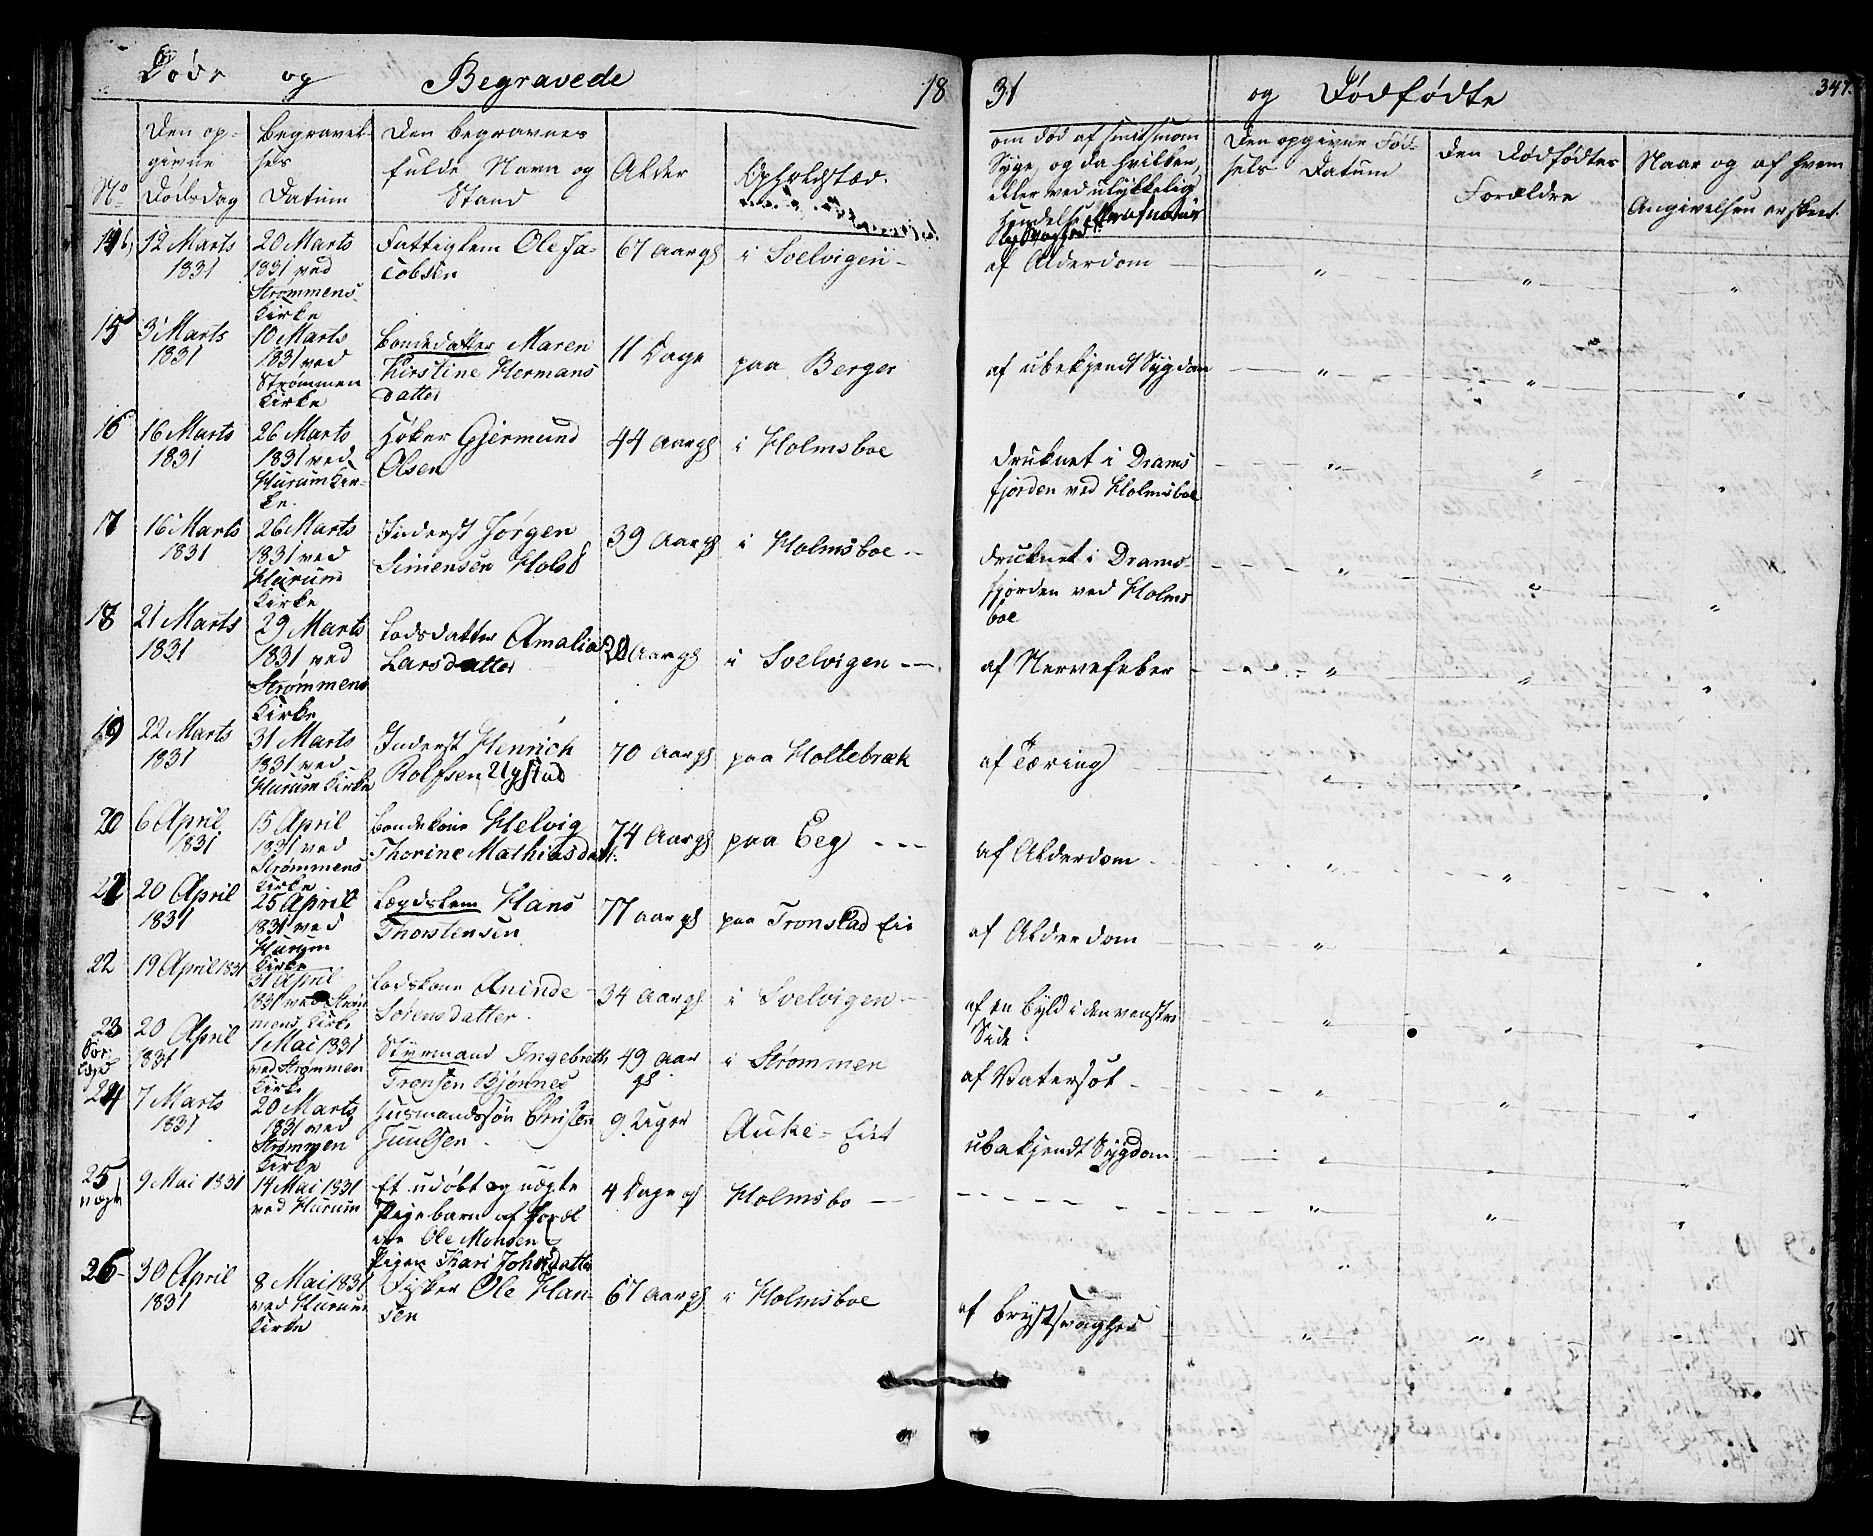 Døde og Begravede 18
31 og Dødfødte 347.
No
Den opgivne Dødsdag
Begravelses Datum
Den begravnes fulde Navn og Stand
Alder
Opholdsted.
om død af smitsom Syge, og da hvilken, eller ved ulykkelig Hendelse
Den opgivne Fødsels Datum
Den Dødfødtes Forældre
Naar og af hvem Angivelsen er skeet.
14 12 Marts 1831 20 Marts 1831 ved Strømmens Kirke Fattiglem Ole Jacobsen 67 Aar gl i Svelvigen - af Alderdom
15 3 Marts 1831 10 Marts 1831 ved Strømmen Kirke Bondedatter Maren Kirstine Hermansdatter 11 Dage paa Berger af ubekjendt Sygdom
16 16 Marts 1831 26 Marts 1831 ved Hurum Kirke. Høker Gjermund Olsen 44 Aar gl i Holmsboe druknet i Dramsfjorden ved Holmsboe
17 16 Marts 1831 26 Marts 1831 ved Hurum Kirke Inderst Jørgen Simensen Holst 39 Aar gl i Holmsboe druknet i Dramsfjorden ved Holmsboe
18 21 Marts 1831 29 Marts 1831 ved Strømmens Kirke Lodsdatter Amalia Larsdatter 20 Aar gl i Svelvigen af Nervefeber
19 22 Marts 1831 31 Marts 1831 ved Hurum Kirke Inderst Henrich Rolfsen 70 Aar gl paa Holtebræk af Tæring
20 6 April 1831 15 April 1831 ved Strømmens Kirke Bondekone Helvig Thorine Mathiasdatt. 74 Aar gl paa Eeg af Alderdom
21 20 April 1831 25 April 1831 ved Hurum Kirke Lægdslem Hans Thorstensen 77 aar gl paa Tronstad Eie af Alderdom
22 19 April 1831 31 April 1831 ved Strømmens Kirke Lodskone Aninde Sørensdatter 34 Aar gl i Svelvigen af en byld i den venstre Side.
23 20 April 1831 1 Mai 1831 ved Strømmen Kirke Styrmand Ingebreth Tronsen Bjønnes 49 aar gl i Strømmen af Vatersot
24 7 Marts 1831 20 Marts 1831 ved Strømmen Kirke Husmandssøn Christen Juulsen 9 Uger Auke-Eiet ubekjendt Sygdom
25 uægte 9 Mai 1831 14 Mai 1831 ved Hurum Et udøbt og uægte Pigebarn af Ole Monsen Pigen Kari Johnsdatter 4 Dage gl Holmsbo
26 30 April 1831 8 Mai 1831 ved Hurum Kirke Fisker Ole Hansen 67 aar gl i Holmsboe af Brystsvaghed